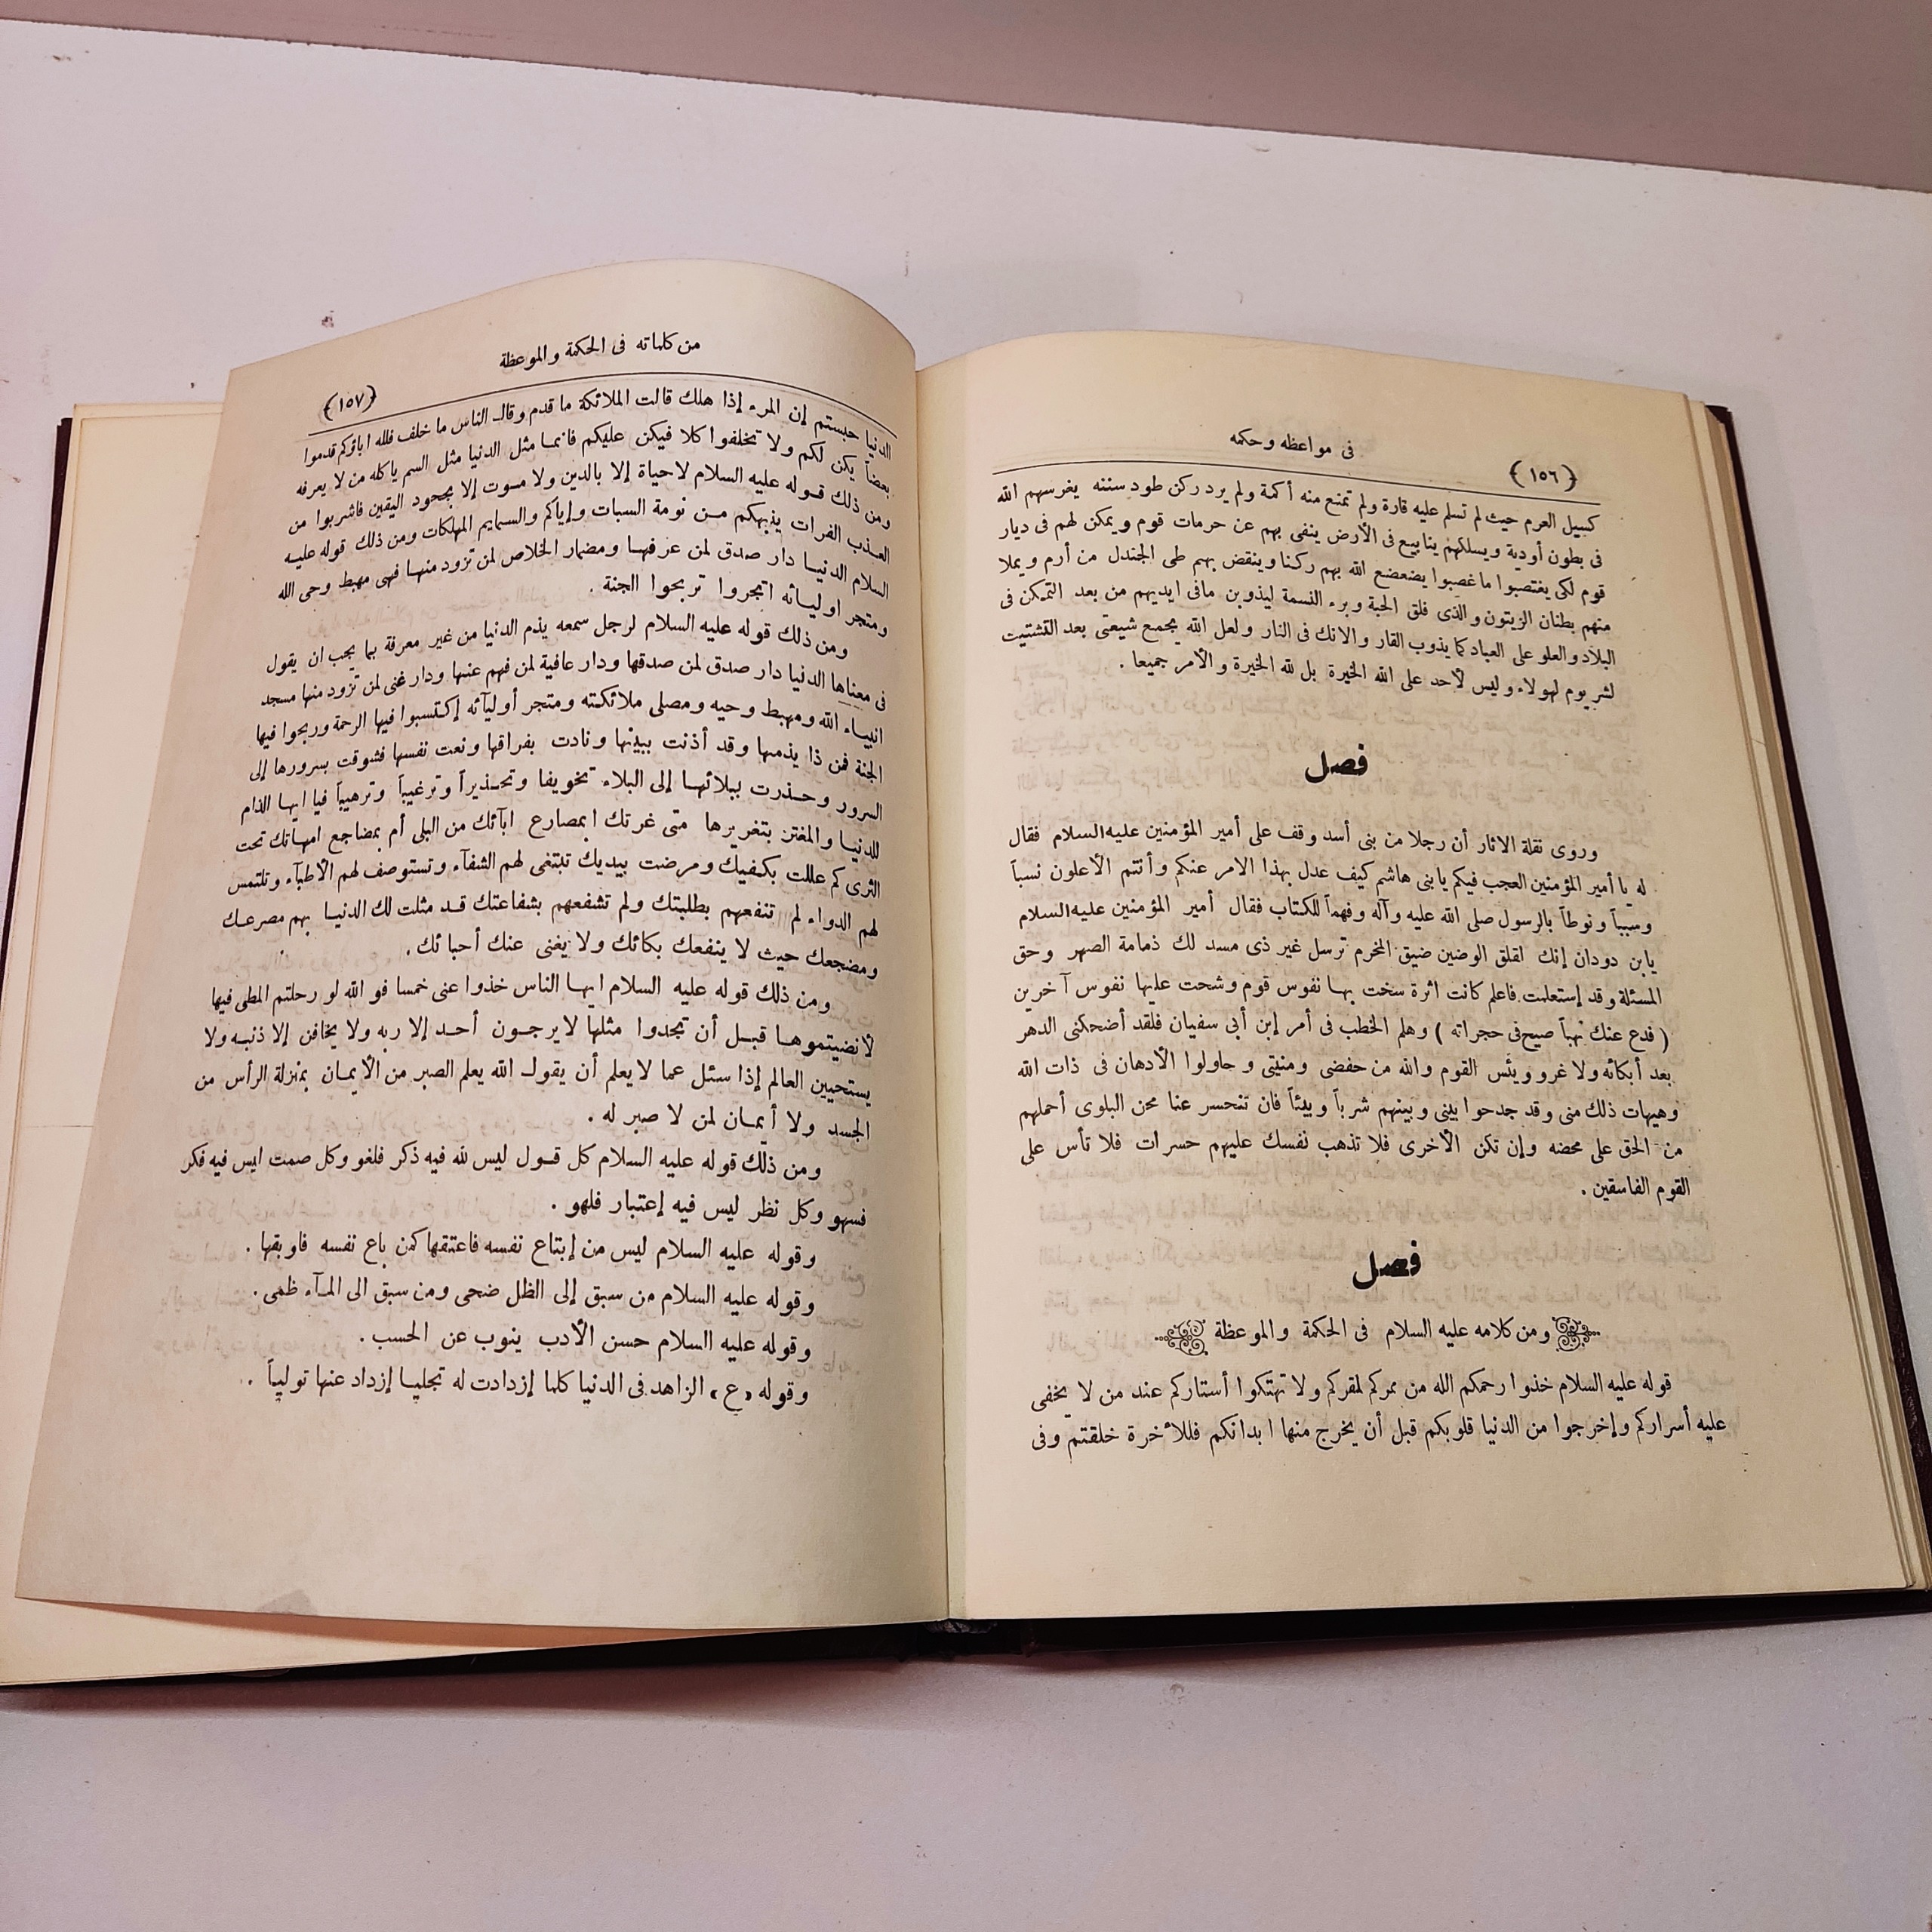 فى مواعظه وحكمه
﴿١٥٦﴾
كسيل العرم حيث لم تسلم عليه قارة ولم تمنع منه أكمة ولم يرد ركن طود سننه يغرسهم الله
فى بطون أودية ويسلكهم ينابيع فى الأرض ينفى بهم عن حرمات قوم ويمكن لهم فى ديار
قوم لكى يغتصبوا ما غصبوا يضعضع الله بهم ركنا وينقض بهم طى الجندل من أرم ويملا
منهم بطنان الزيتون والذى فلق الحبة وبرء النسمة ليذوبن مافى ايديهم من بعد التمكن فى
البلاد والعلو على العباد كما يذوب القار والانك فى النار ولعل الله يجمع شيعتى بعد التشتيت
لشر يوم لهولاء وليس لأحد على الله الخيرة بل لله الخيرة والأمر جميعا .
فصل
وروى نقلة الاثار أن رجلا من بنى أسد وقف على أمير المؤمنين عليه السلام فقال
له يا أمير المؤمنين العجب فيكم يابنى هاشم كيف عدل بهذا الامر عنكم وأنتم الأعلون نسباً
وسبباً ونوطاً بالرسول صلى الله عليه وآله وفهماً للكتاب فقال أمير المؤمنين عليه السلام
يابن دودان إنك لقلق الوضين ضيق المخرم ترسل غير ذى مسد لك ذمامة الصهر وحق
المسئلة وقد إستعلمت فاعلم كانت اثرة سخت بها نفوس قوم وشحت عليها نفوس آخرين
( فدع عنك نهباً صيح فى حجراته ) وهلم الخطب فى أمر إبن أبى سفيان فلقد أضحكنى الدهر
بعد أبكائه ولا غرو ويئس القوم والله من حفضى ومنيتى وحاولوا الأدهان فى ذات الله
وهيهات ذلك منى وقد جدحوا بينى وبينهم شرباً وبيئاً فان تنحسر عنا محن البلوى أحملهم
من الحق على محضه وإن تكن الأخرى فلا تذهب نفسك عليهم حسرات فلا تأس على
القوم الفاسقين .
فصل
ومن كلامه عليه السلام فى الحكمة والموعظة
قوله عليه السلام خذوا رحمكم الله من ممركم لمقركم ولا تهتكوا أستاركم عند من لا يخفى
عليه أسراركم وإخرجوا من الدنيا قلوبكم قبل أن يخرج منها ابدانكم فللأخرة خلقتم وفى
من كلماته فى الحكمة والموعظة
﴿١٥٧﴾
الدنيا حبستم إن المرء إذا هلك قالت الملائكة ما قدم وقال الناس ما خلف فلله اباؤكم قدموا
بعضاً يكن لكم ولا تخلفوا كلا فيكن عليكم فانما مثل الدنيا مثل السم ياكله من لا يعرفه
ومن ذلك قوله عليه السلام لاحياة إلا بالدين ولا موت إلا بجحود اليقين فاشربوا من
العذب الفرات ينبهكم من نومة السبات وإياكم والسمايم المهلكات ومن ذلك قوله عليه
السلام الدنيا دار صدق لمن عرفها ومضمار الخلاص لمن تزود منها فهى مهبط وحى الله
ومتجر اوليائه اتجروا تربحوا الجنة .
ومن ذلك قوله عليه السلام لرجل سمعه يذم الدنيا من غير معرفة بما يجب ان يقول
فى معناها الدنيا دار صدق لمن صدقها ودار عافية لمن فهم عنها ودار غنى لمن تزود منها مسجد
انبياء الله ومهبط وحيه ومصلى ملائكته ومتجر أوليآئه إكتسبوا فيها الرحمة وربحوا فيها
الجنة فمن ذا يذمها وقد أذنت ببينها ونادت بفراقها ونعت نفسها فشوقت بسرورها إلى
السرور وحذرت ببلائها إلى البلاء تخويفا وتحذيراً وترغيباً وترهيباً فيا ايها الذام
للدنيا والمغتر بتغريرها متى غرتك ابمصارع ابآئك من البلى أم بمضاجع امهاتك تحت
الثرى كم عللت بكفيك ومرضت بيديك تبتغى لهم الشفآء وتستوصف لهم الأطبآء وتلتمس
لهم الدواء لم تنفعهم بطلبتك ولم تشفعهم بشفاعتك قد مثلت لك الدنيا بهم مصرعك
ومضجعك حيث لا ينفعك بكائك ولا يغنى عنك أحبائك .
ومن ذلك قوله عليه السلام ايها الناس خذوا عنى خمسا فو الله لو رحلتم المطى فيها
لأنضيتموها قبل أن تجدوا مثلها لا يرجون أحد إلا ربه ولا يخافن إلا ذنبه ولا
يستحيين العالم إذا سئل عما لا يعلم أن يقول الله يعلم الصبر من الأيمان بمنزلة الرأس من
الجسد ولا أيمان لمن لا صبر له .
ومن ذلك قوله عليه السلام كل قول ليس لله فيه ذكر فلغو وكل صمت ليس فيه فكر
فسهو وكل نظر ليس فيه إعتبار فلهو .
وقوله عليه السلام ليس من إبتاع نفسه فاعتقها كمن باع نفسه فاوبقها .
وقوله عليه السلام من سبق إلى الظل ضحى ومن سبق الى المآء ظمى .
وقوله عليه السلام حسن الأدب ينوب عن الحسب .
وقوله «ع» الزاهد فى الدنيا كلما إزدادت له تجليا إزداد عنها تولياً .